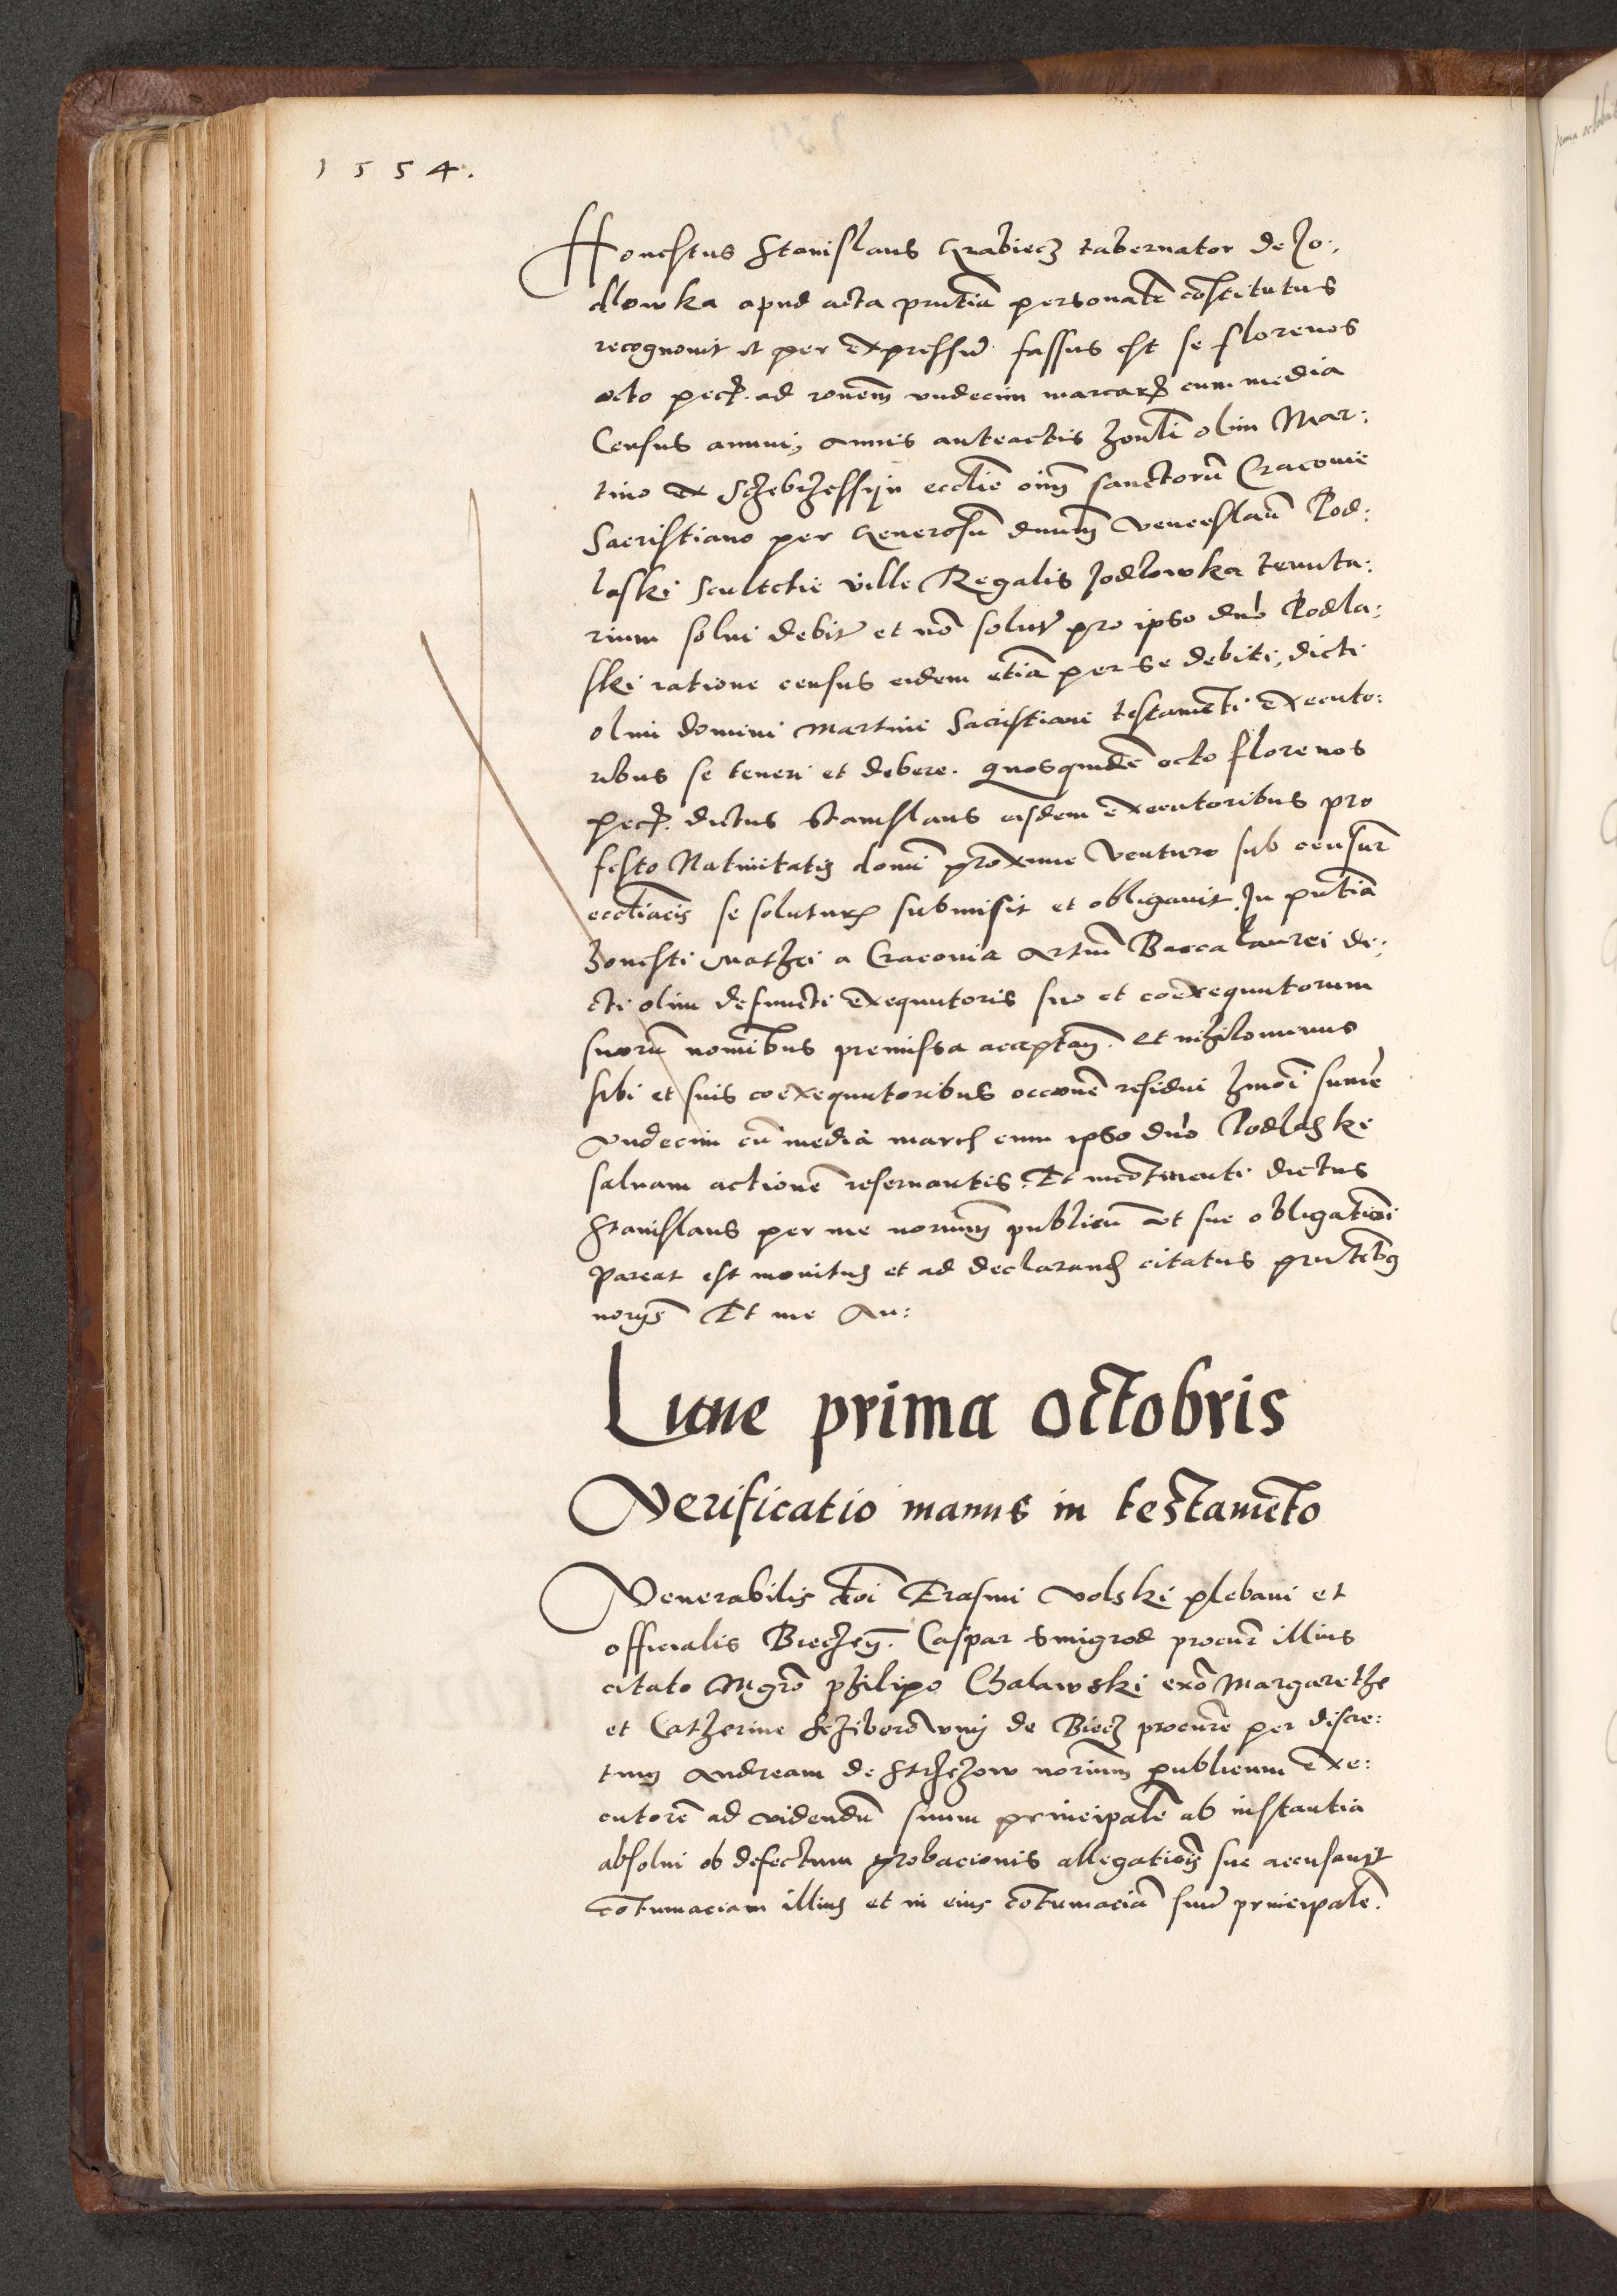 1554.
Honestus Stanislaus Grabiecz tabernator de Jo:
dlowka apud acta pn̄tia personalr̄ cōstitutus
recognouit et per expressū fassus est se florenos
octo pecū. ad ronem̄ vndecim marcarꝝ cum media
Census annui, annis anteactis hon̄li olim Mar:
tino ex Sczebrzessyn eccl̄ie oīm sanctorū Cracouie
Sacristiano per Generosū dnūm venceslaū Pod:
laski Scultetie ville Regalis Jodlowka tenuta:
rium solui debit̄ et nō solut̄ pro ipso dnō Podla:
ski ratione census eidem etiā per se debiti, dicti
olim domini Martini Sacristiani testamēti executo:
ribus se teneri et debere. quosquidē octo florenos
pecū. dictus Stanislaus eisdem executoribus pro
festo Natiuitatis domī proxime venturo sub censur̄
eccl̄iacis se soluturꝝ submisit et obligauit. In pn̄tia
honesti Mathei a Cracouia Artiū Baccalaurei di:
cti olim defuncti exequutoris suo et coexequutorum
suorū nomībus premissa acceptan̄. Et nihilominus
sibi et suis coexequutoribus occ̄one residui hmōi sum̄e
vndecim cū media march cum ipso dnō Podlaski
saluam actionē reseruantis. Et incōtinenti dictus
Stanislaus per me norium̄ publicū vt sue obligatioī
pareat est monitus et ad declarand̄ citatus pn̄tibus
norijs̄ Et me An:
Lune prima octobris
Verificatio manus in testamēto
Venerabilis dōi Erasmi Volski plebani et
officialis Bieczen̄. Caspar Smigrod procur̄ illius
citato Mgrō philipo Chalawski exō Margarethe
et Catherine Scziborowny de Biecz procurē per discre:
tum Andream de Strzezow norium̄ publicum exe:
cutorē ad videndū suum principalē ab instantia
absolui ob defectum probacionis allegatiōis sue accusauit
cōtumaciam illius et in eius cōtumaciā suū principalē.